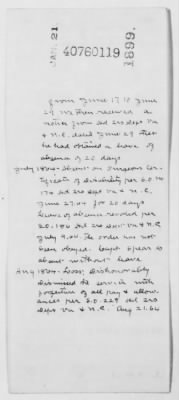 JAN. 21
40760119
1899.
from June 17 to June
29 1864 then received a
notice from Hd 2rs Dept Va
& N.C. dated June 29 that
he had obtained a leave of
absence of 20 days
July 1864 = absent on Surgeons Cer-
tificate of disability per S.O. No
174 Hd 2rs Dept Va & N.C.
June 27.64 for 20 days
leave of absence revoked per
S.O. 186 Hd 2rs Dept Va & N.C.
July 9.64. The order has not
been obeyed. Capt Spear is
absent without leave
Aug 1864 = Loss; dishonorably
dismissed the service with
forfeiture of all pay & allow-
ances per S.O. 229 Hd 2rs
Dept Va & N.C. Aug 21.64